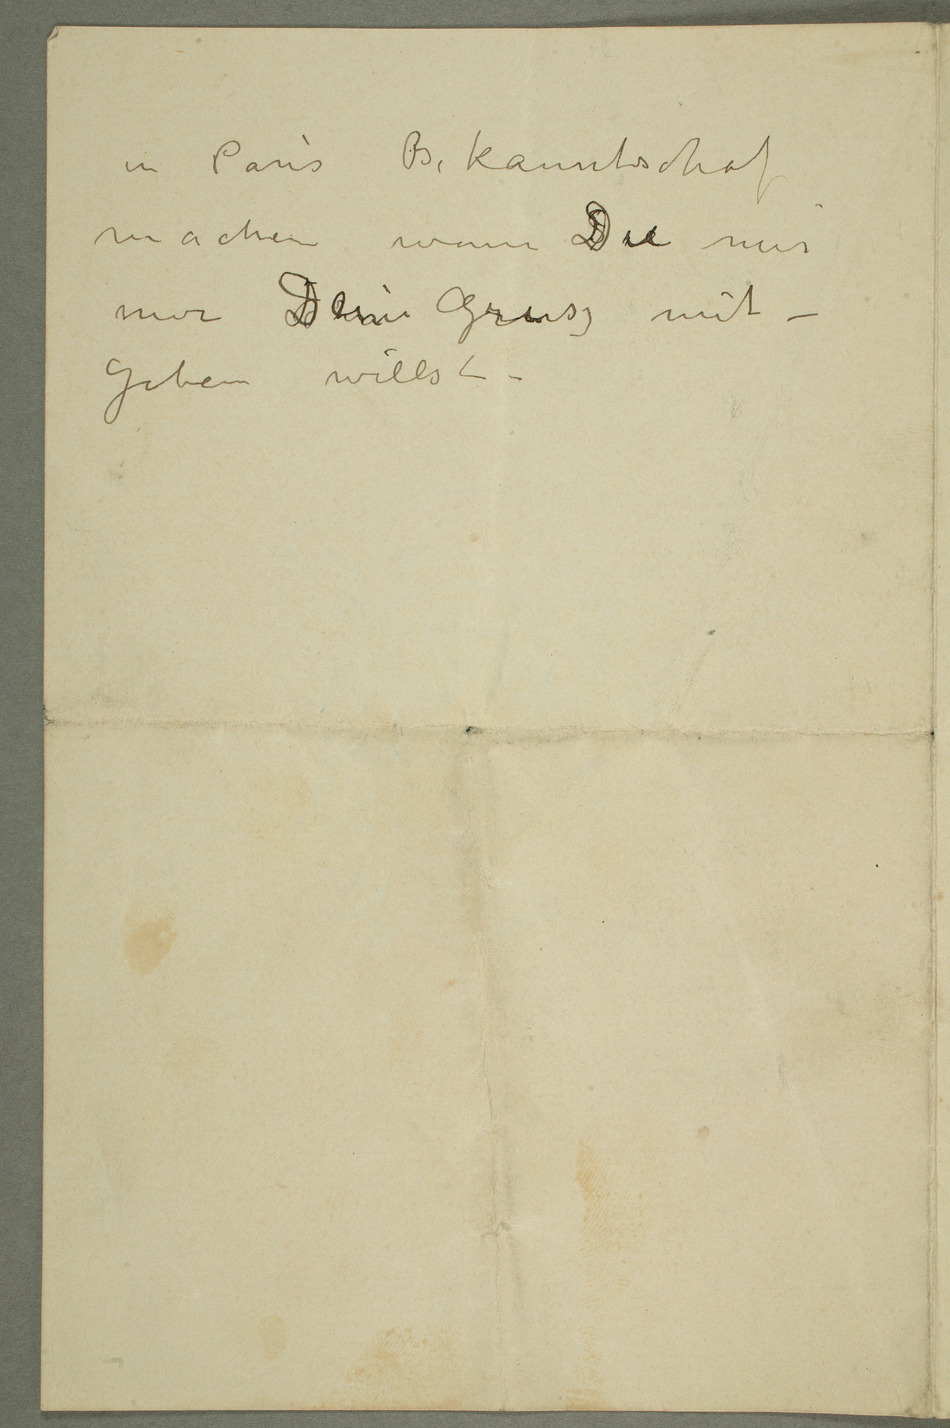 in Paris Bekanntschaf
machen wenn Du mir
nur Dein Grusz mit –
geben willst –